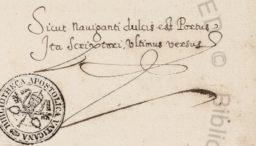 Sicut naviganti dulcis est Portus
Ita Scriptori, Vltimus versus
BIBLIOTHECA APOSTOLICA VATICANA
© Biblio